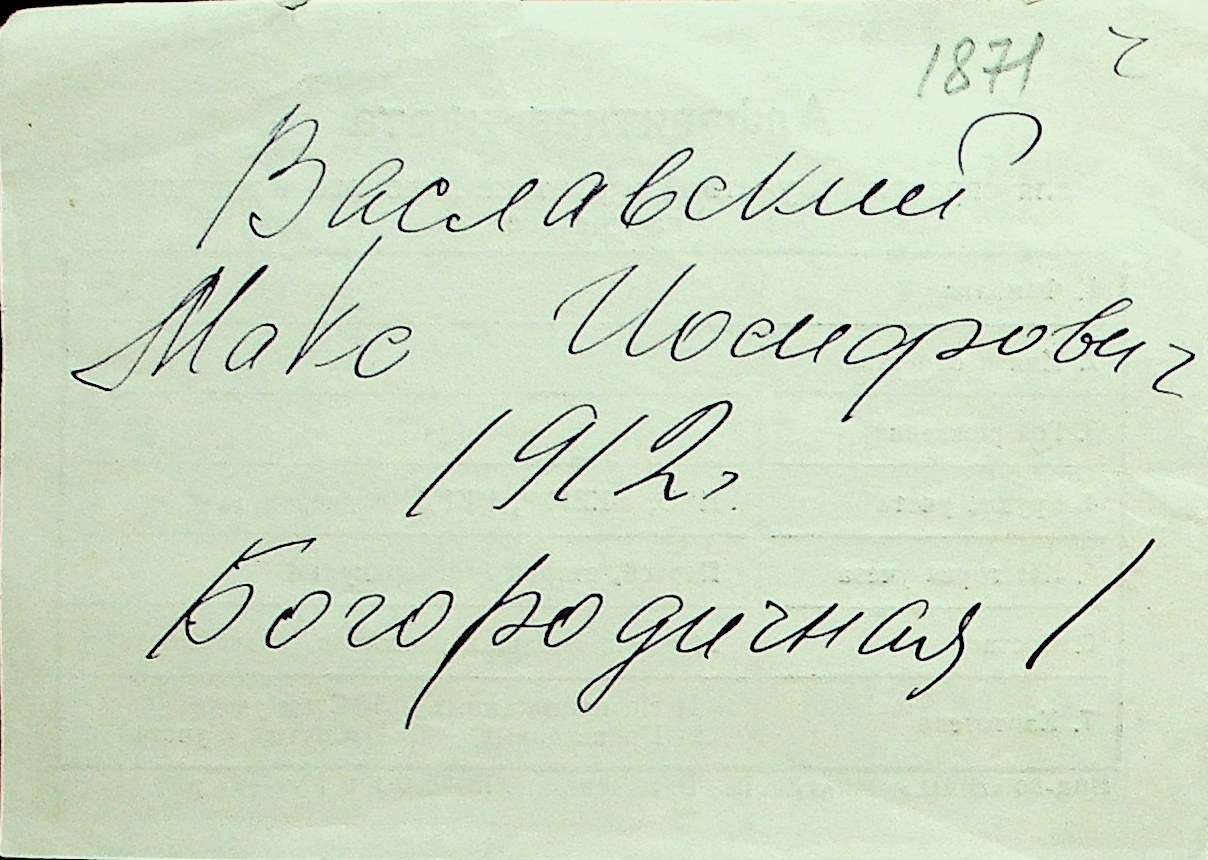 1871 г
Ваславский
Макс Иосифович
1912г
Богородичная 1